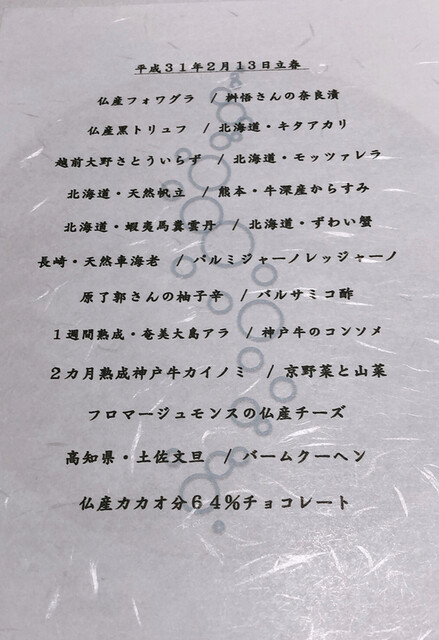 平成31年2月13日立春
仏産フォワグラ / 桝悟さんの奈良漬
仏産黒トリュフ / 北海道・キタアカリ
越前大野さとういらず / 北海道・モッツァレラ
北海道・天然帆立 / 熊本・牛深産からすみ
北海道・蝦夷馬糞雲丹 / 北海道・ずわい蟹
長崎・天然車海老 / パルミジャーノレッジャーノ
原了郭さんの柚子辛 / バルサミコ酢
1週間熟成・奄美大島アラ / 神戸牛のコンソメ
2カ月熟成神戸牛カイノミ / 京野菜と山菜
フロマージュモンスの仏産チーズ
高知県・土佐文旦 / バームクーヘン
仏産カカオ分64%チョコレート